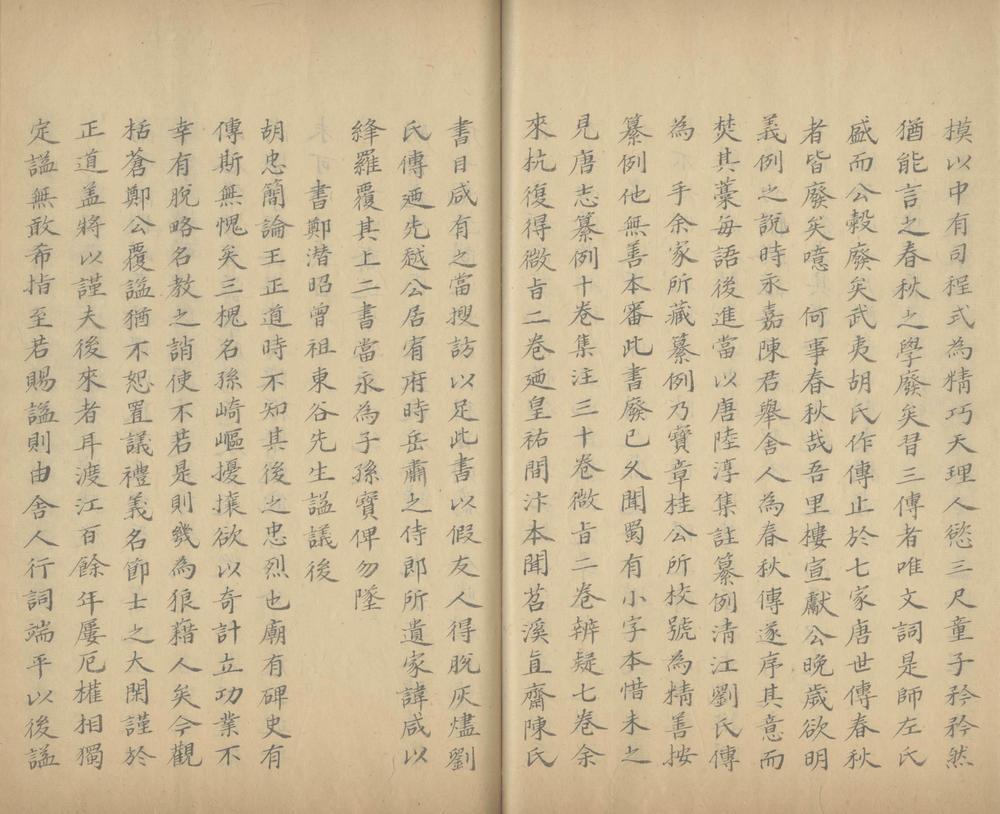 摸以中有司程式為精巧天理人慾三尺童子矜矜然
猶能言之春秋之學廢矣昔三傳者唯文詞是師左氏
盛而公穀廢矣武夷胡氏作傳止於七家唐世傳春秋
者皆廢矣噫何事春秋哉吾里樓宣獻公晚歲欲明
義例之說時永嘉陳君舉舍人為春秋傳遂序其意而
焚其藁每語後進當以唐陸淳集註纂例清江劉氏傳
為手余家所藏纂例乃寶章桂公所校號為精善按
纂例他無善本審此書廢已久聞蜀有小字本惜未之
見唐志纂例十卷集注三十卷微旨二卷辨疑七卷余
來杭復得微旨二卷廼皇祐間汴本聞苕溪直齋陳氏
書目咸有之當搜訪以足此書以假友人得脫灰燼劉
氏傳廼先越公居宥府時岳肅之侍郎所遺家諱咸以
絳羅覆其上二書當永為子孫寶俾勿墜
書鄭潛昭曾祖東谷先生謚議後
胡忠簡論王正道時不知其後之忠烈也廟有碑史有
傳斯無愧矣三槐名孫崎嶇擾攘欲以奇計立功業不
幸有脫略名教之誚使不若是則幾為狼藉人矣今觀
栝蒼鄭公覆謚猶不恕置議禮義名節士之大閑謹於
正道盖將以謹夫後來者耳渡江百餘年屢厄權相獨
定謚無敢希指至若賜謚則由舍人行詞端平以後謚